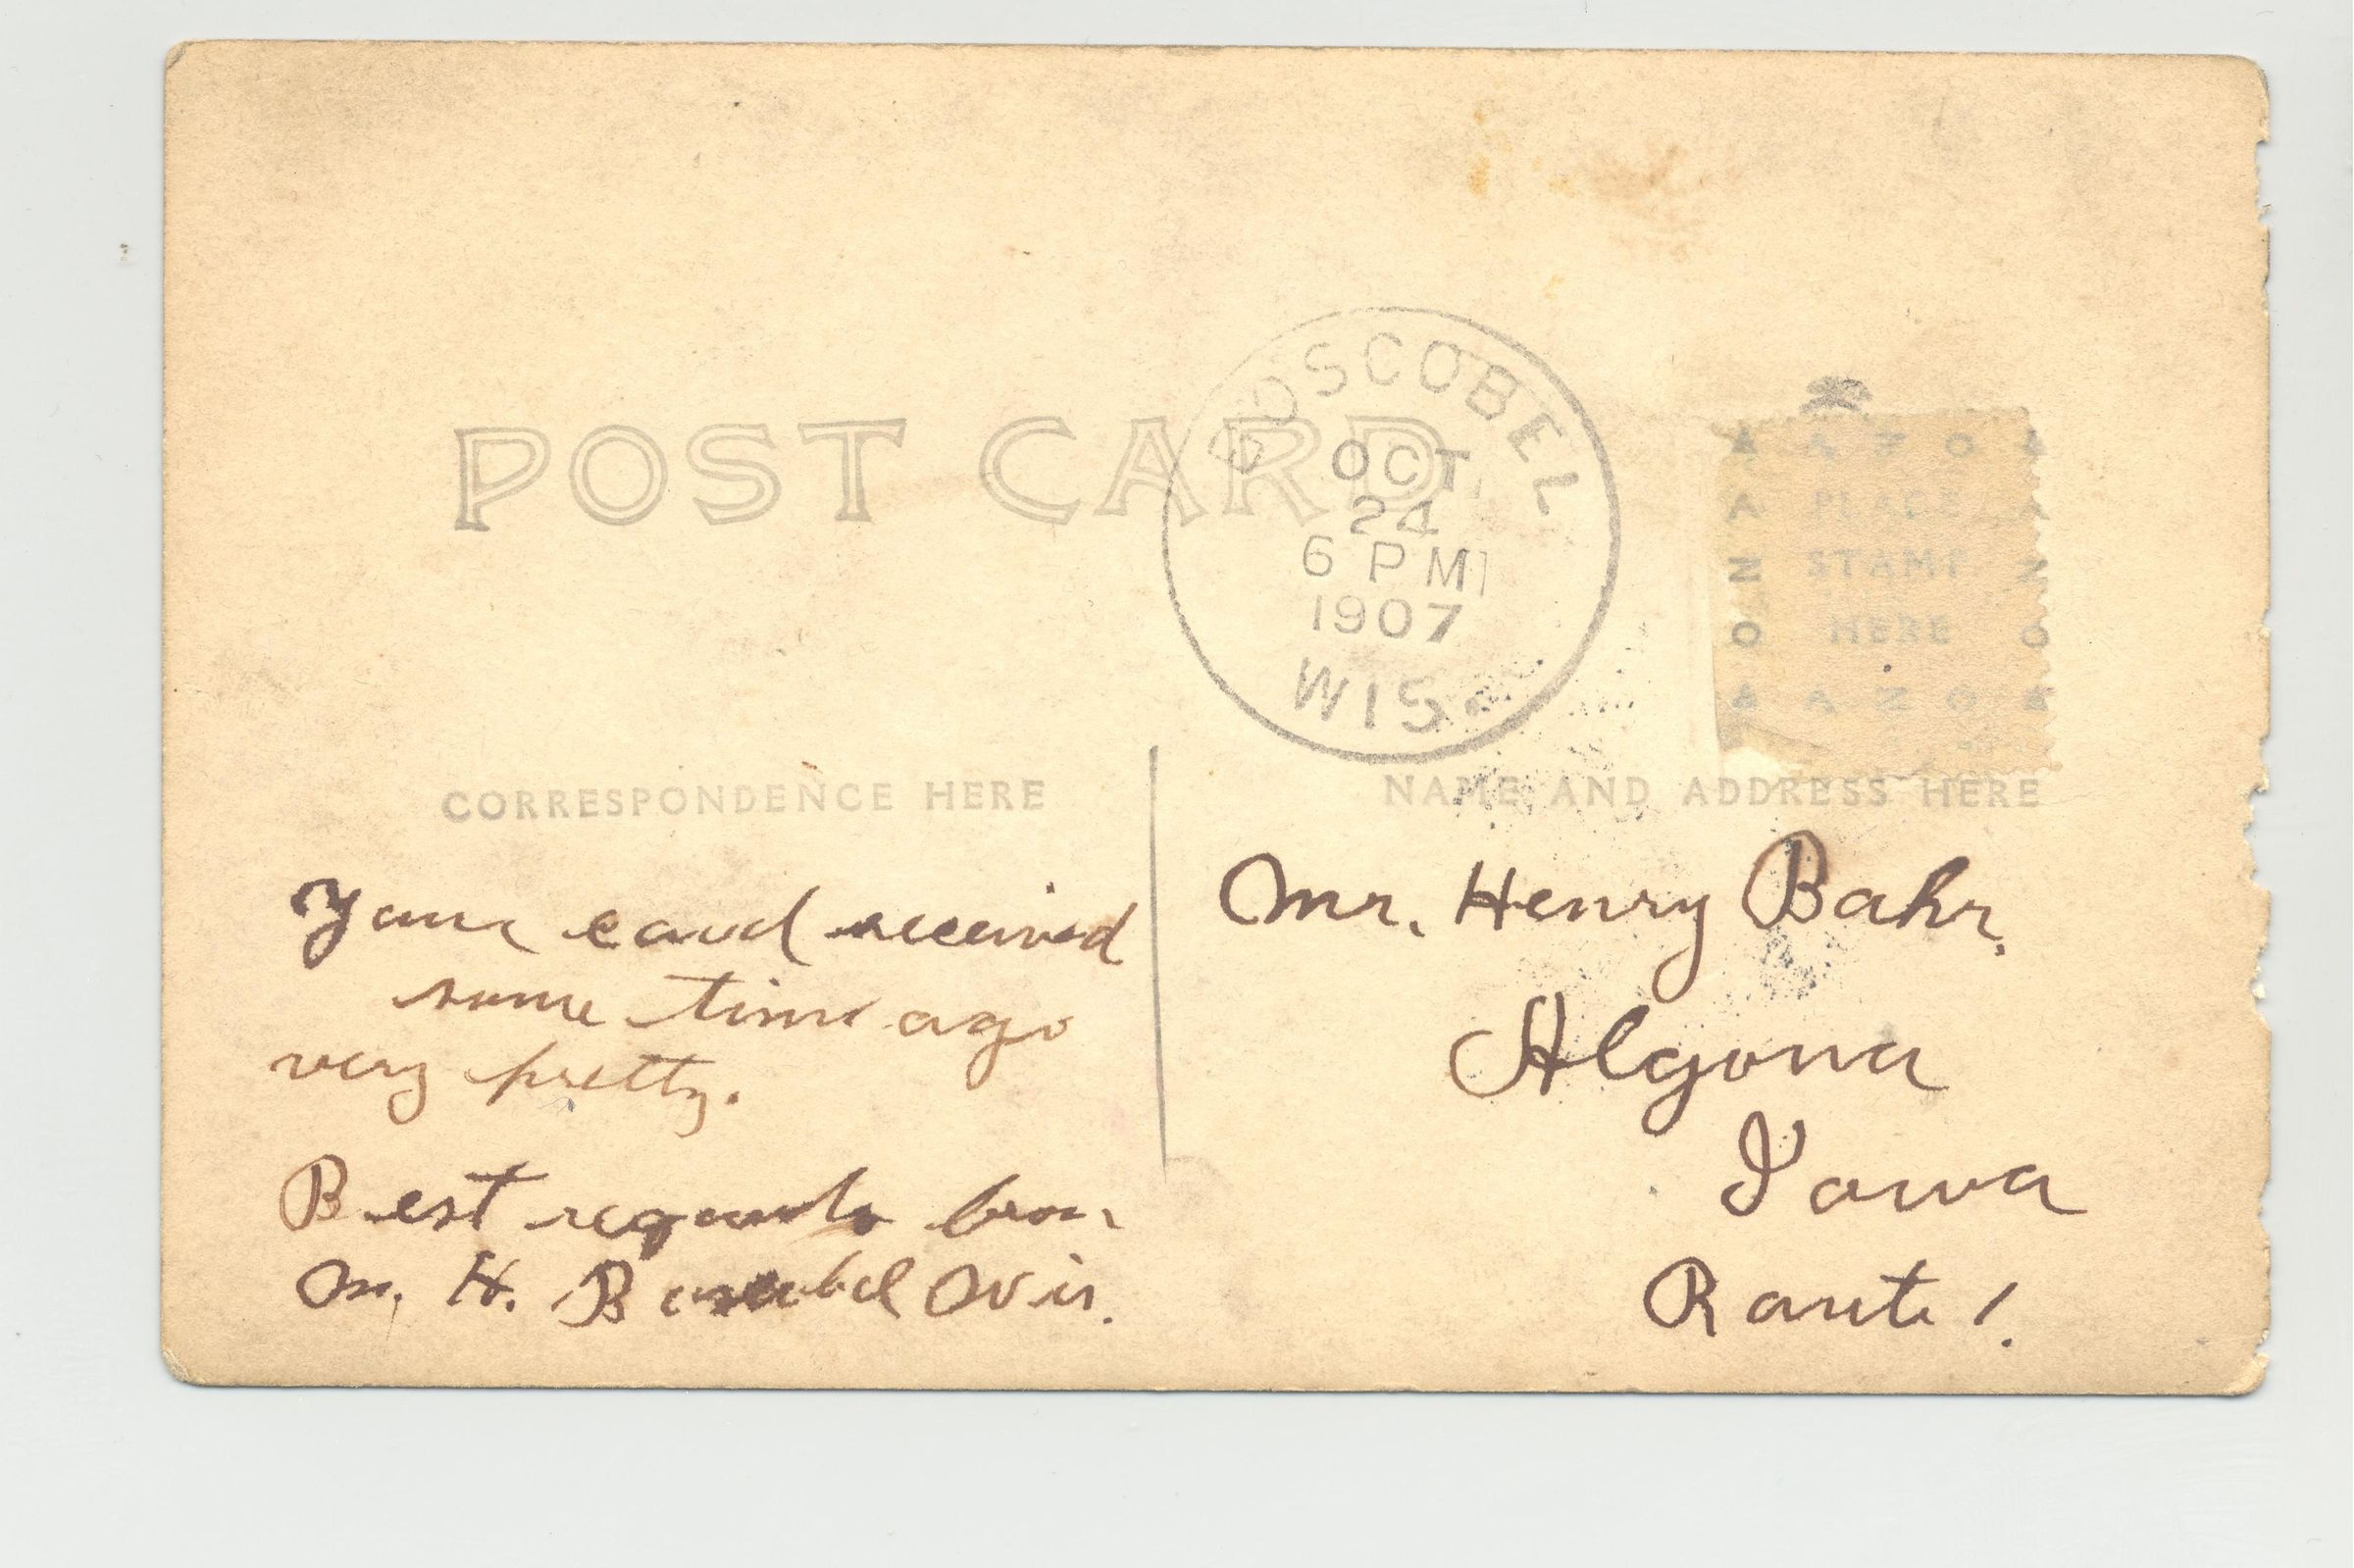 POST CARD
BOSCOBEL
OCT
24
6 PM
1907
WIS.
AZO
PLACE
STAMP
HERE
AZO
AZO
AZO
CORRESPONDENCE HERE
NAME AND ADDRESS HERE
Your card received
some time ago
very pretty.
Best regards from
M. H. Boscobel Wis.
Mr. Henry Bahr.
Algona
Iowa
Route 1.